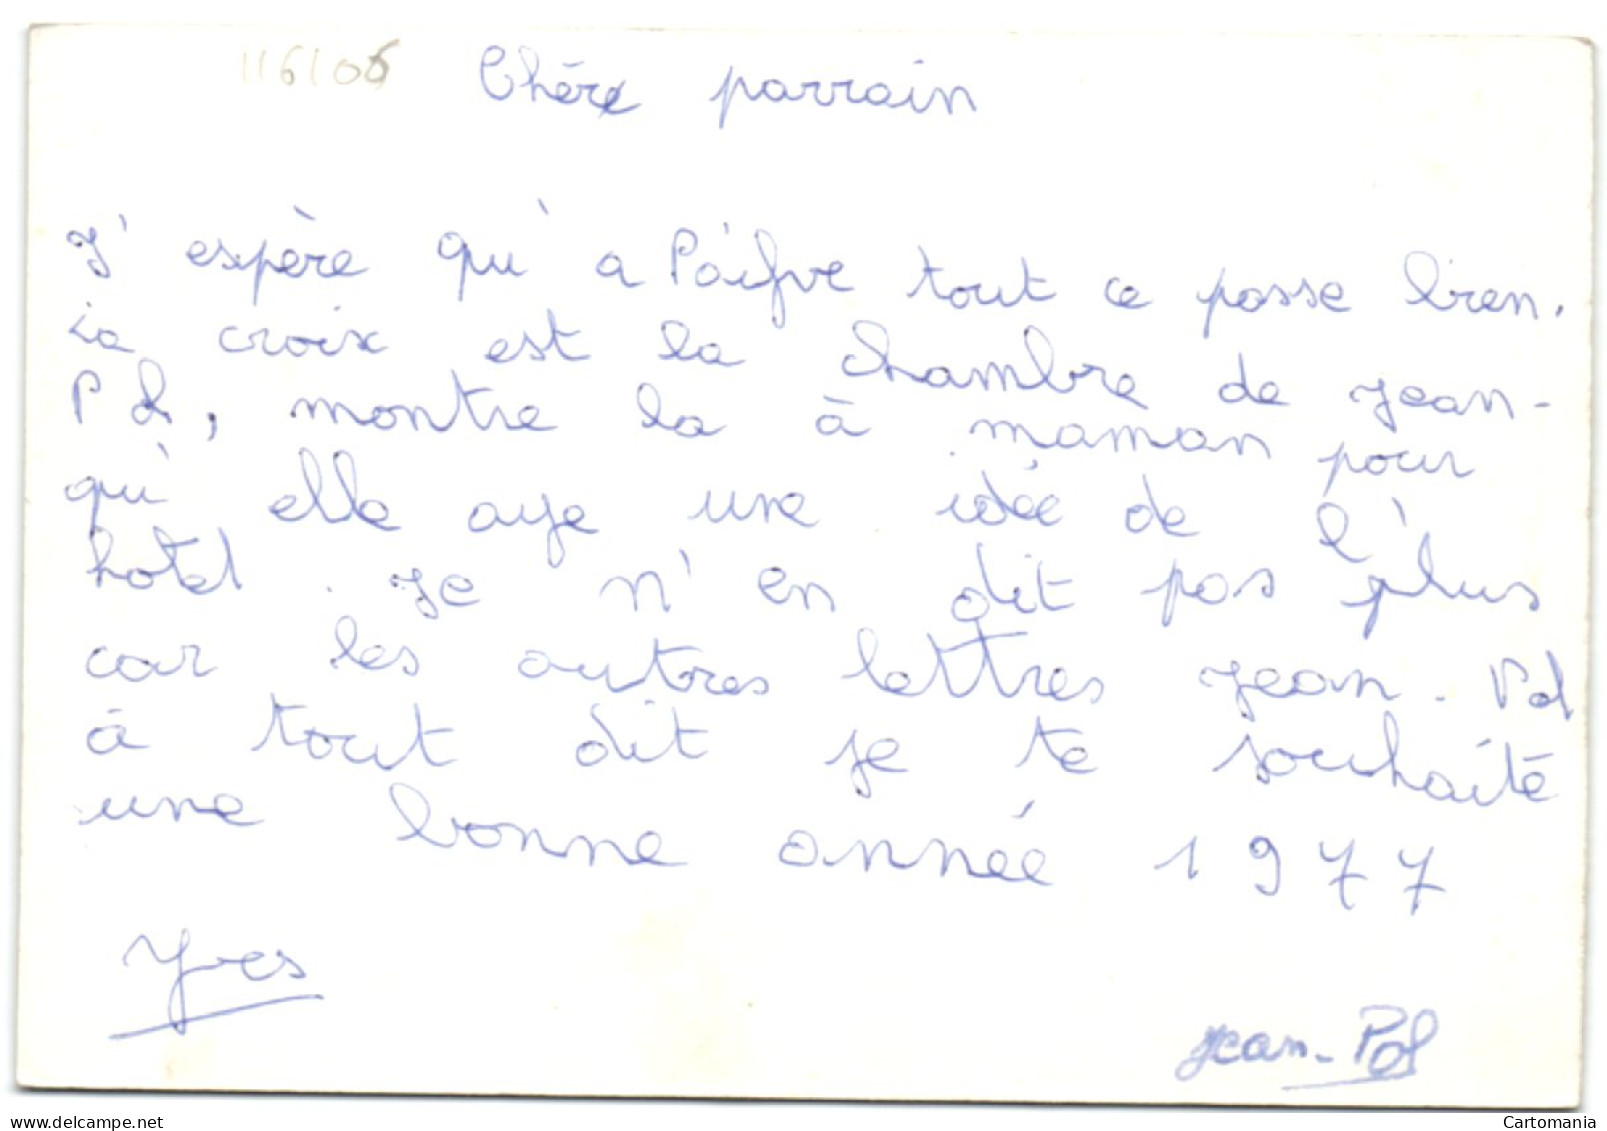 116105
Chère parrain
J' espère qu' a Païfve tout ce passe bien.
La croix est la chambre de jean-
Pol, montre la à maman pour
qu' elle aye une idée de l'
hotel. Je n' en dit pas plus
car les autres lettres jean-Pol
à tout dit je te souhaité
une bonne année 1977
Yves
jean-Pol
Cartomania